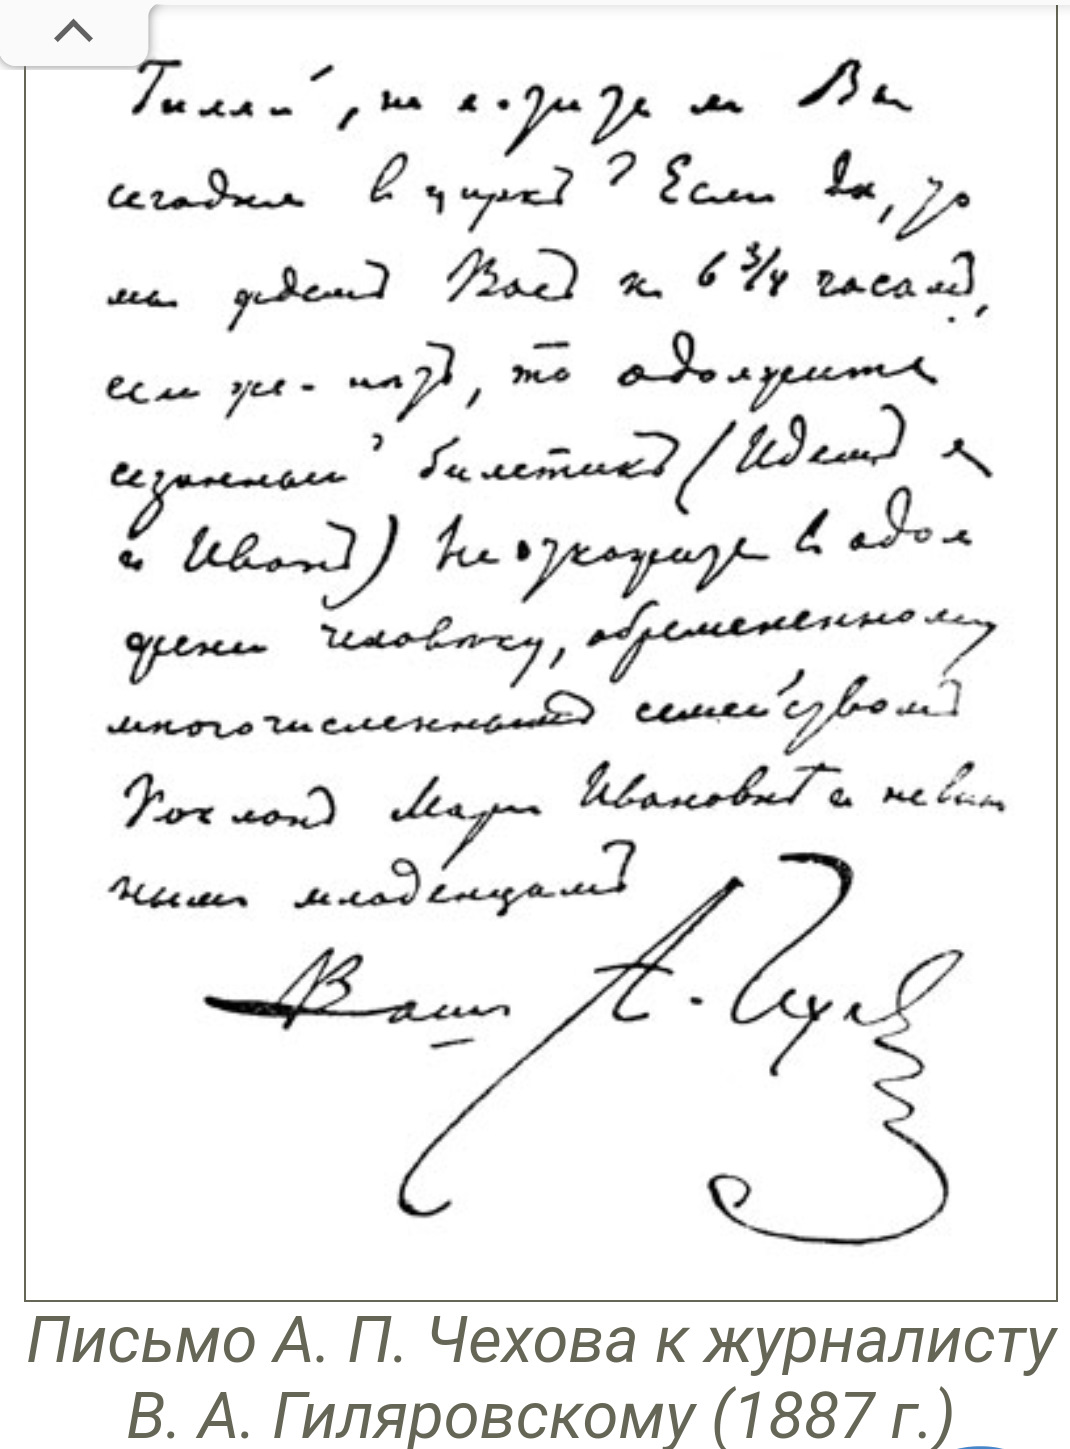 Гиляй, не ли Вы
сегодня в циркѣ? Если да, то
мы ждемъ Васъ к 6 3/4 часамъ,
если же - нѣтъ, то одолжите
сезонный билетикъ (Идемъ я
и Иванъ) Не откажите в одол
жении человѣку, обремененному
многочисленнымъ семействомъ
Поклонъ Ивановнѣ и невин
нымъ младенцамъ
Вашъ А. Чехов
Письмо А. П. Чехова к журналисту
В. А. Гиляровскому (1887 г.)